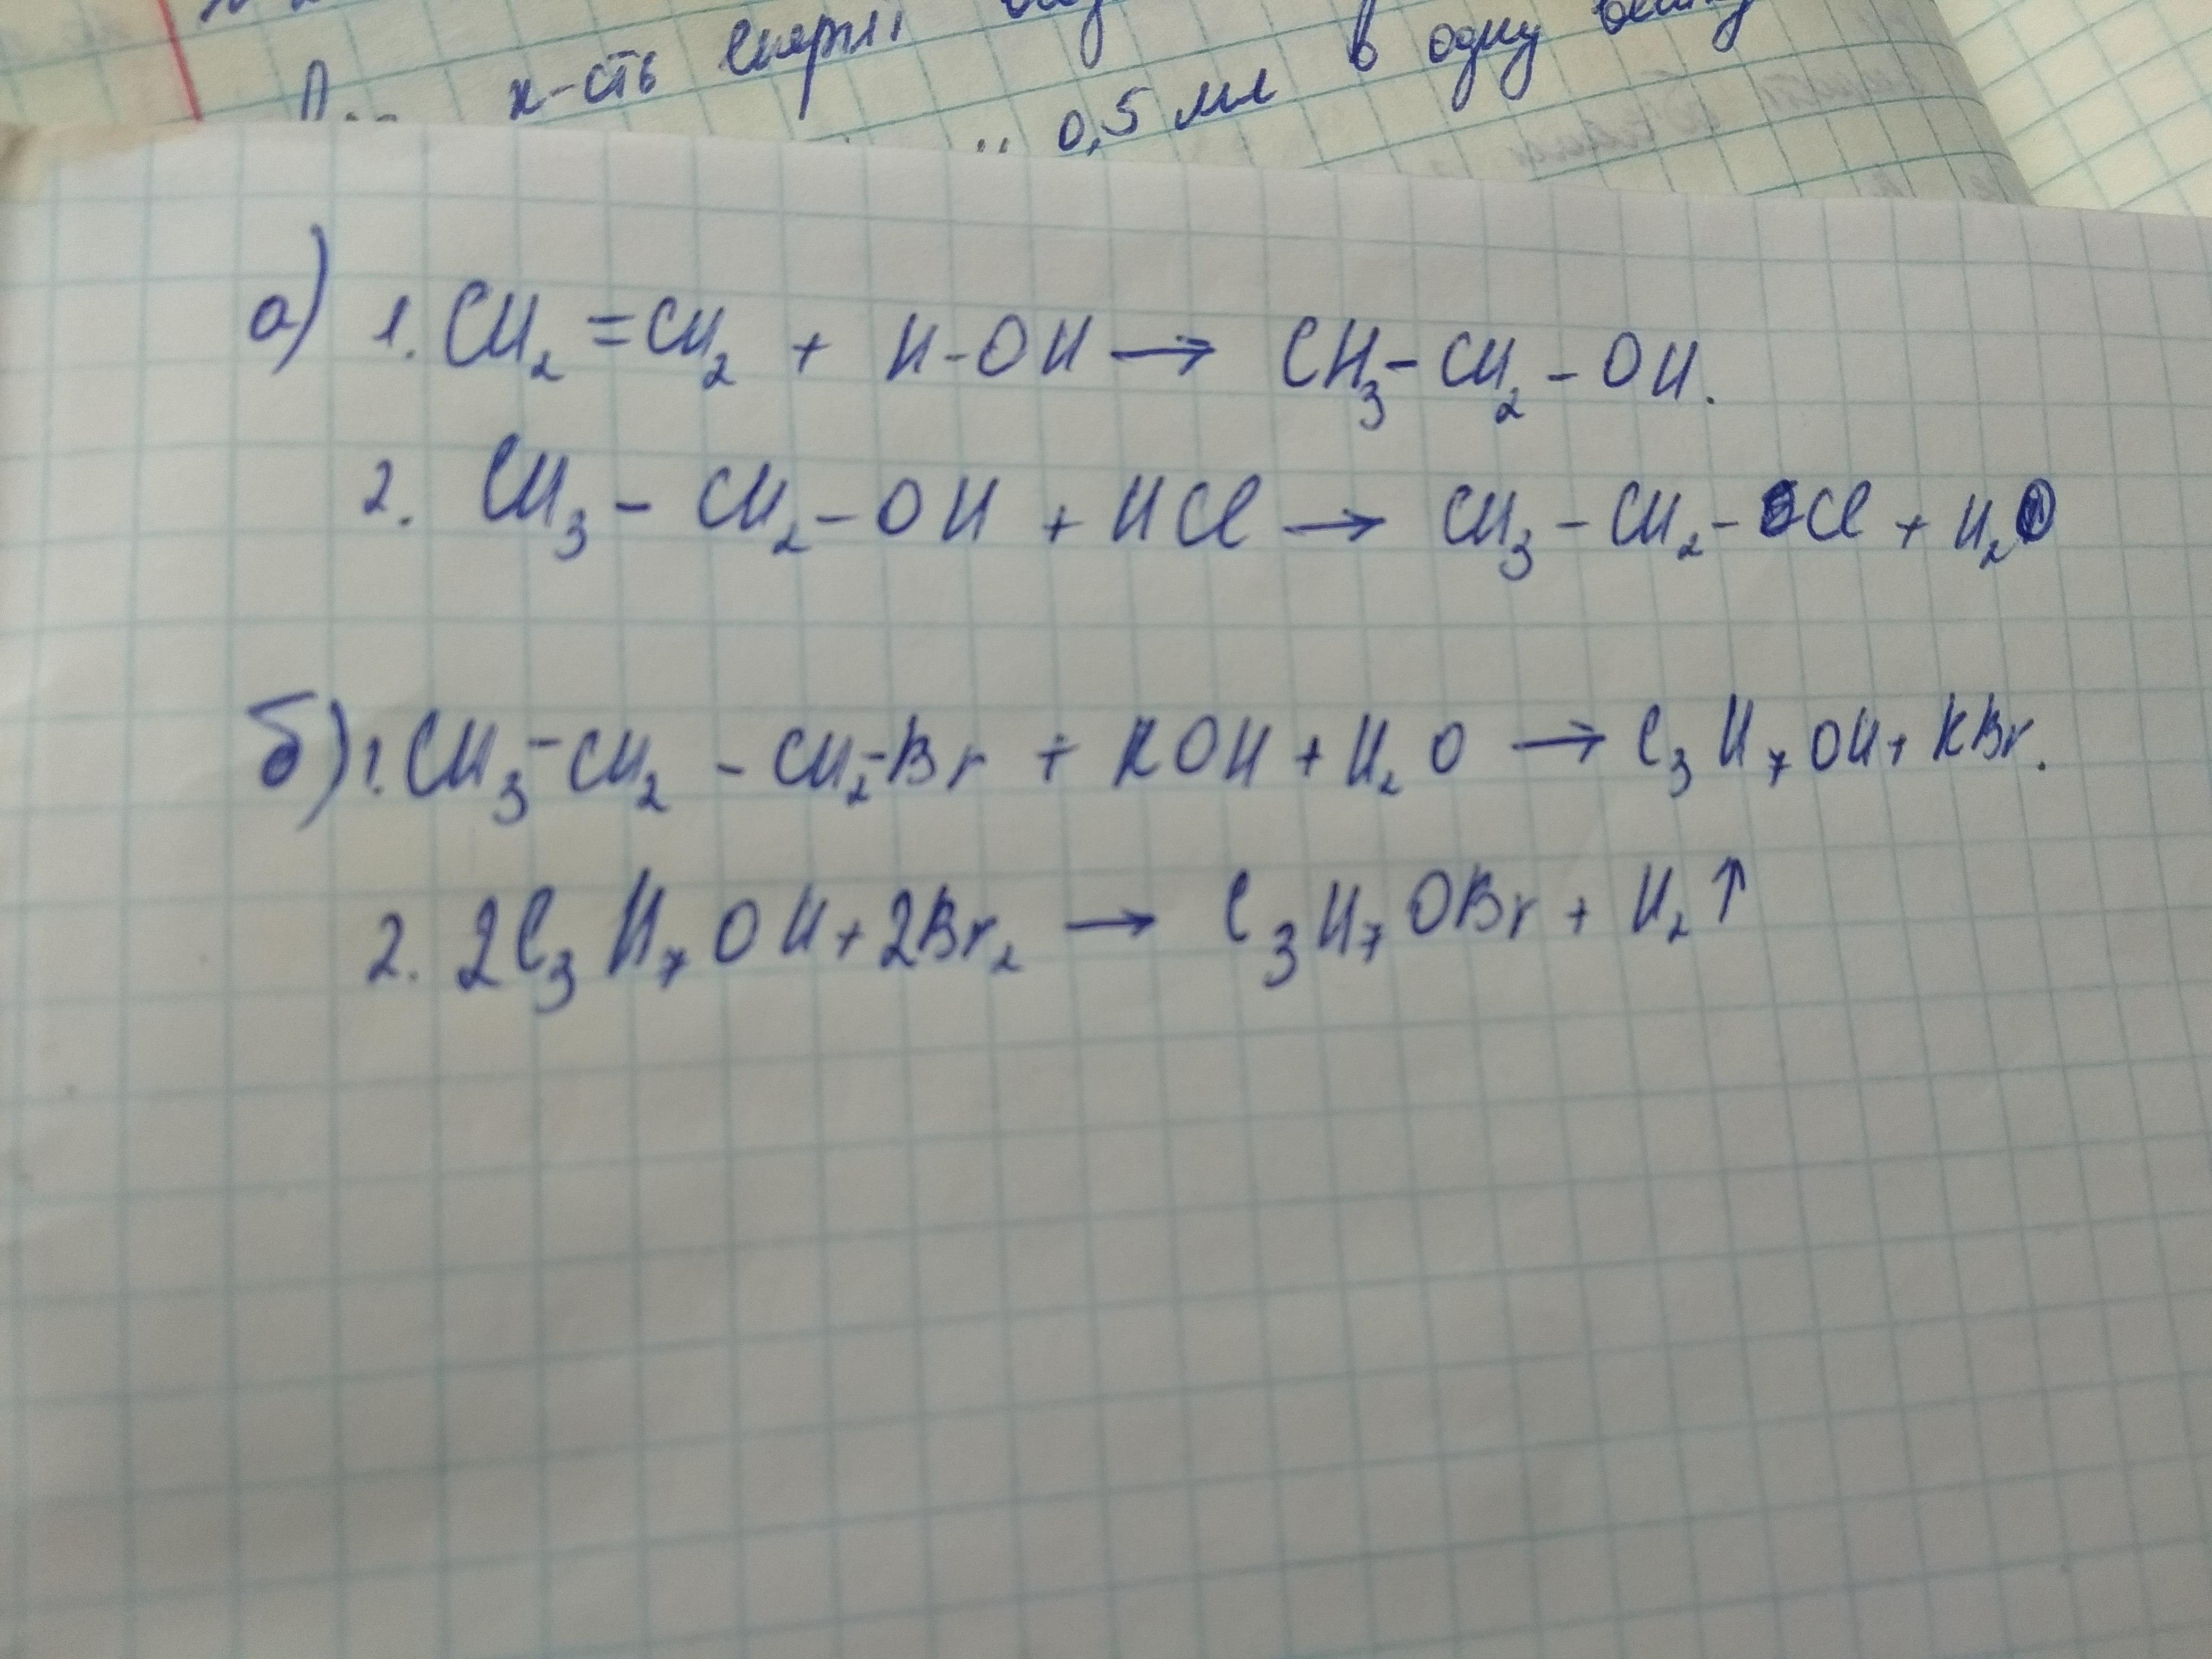 к-сть
0,5 мл в одну
а) 1. CH₂=CH₂ + H-OH → CH₃-CH₂-OH.
2. CH₃-CH₂-OH + HCl → CH₃-CH₂-Cl + H₂O
б) 1. CH₃-CH₂-CH₂-Br + KOH + H₂O → C₃H₇OH + KBr.
2. 2C₃H₇OH + 2Br₂ → C₃H₇OBr + H₂↑